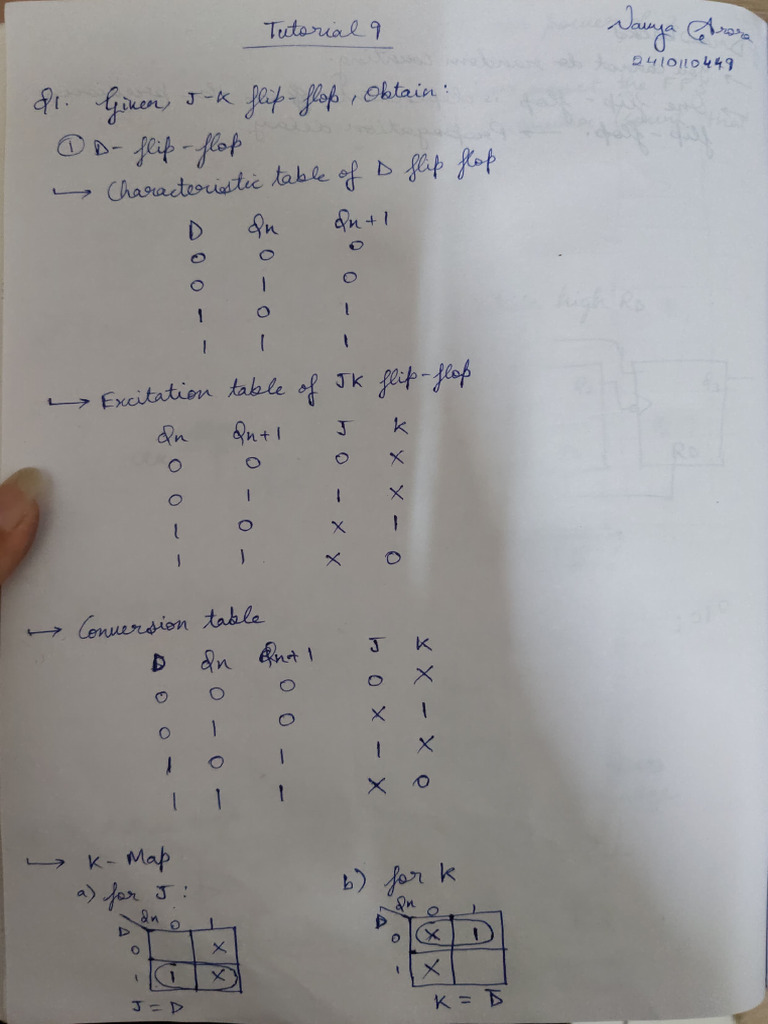 Tutorial 9
Navya Arora
2410110449
Q1. Given, J-K flip-flop, Obtain:
① D-flip-flop
→ Characteristic table of D flip flop
D Qn Qn+1
0 0 0
0 1 0
1 0 1
1 1 1
→ Excitation table of JK flip-flop
Qn Qn+1 J K
0 0 0 X
0 1 1 X
1 0 X 1
1 1 X 0
→ Conversion table
D Qn Qn+1 J K
0 0 0 0 X
0 1 0 X 1
1 0 1 1 X
1 1 1 X 0
→ K-Map
a) for J:
D Qn 0 1
0 X
1 1 X
J = D
b) for K
D Qn 0 1
0 X 1
1 X
K = D̅